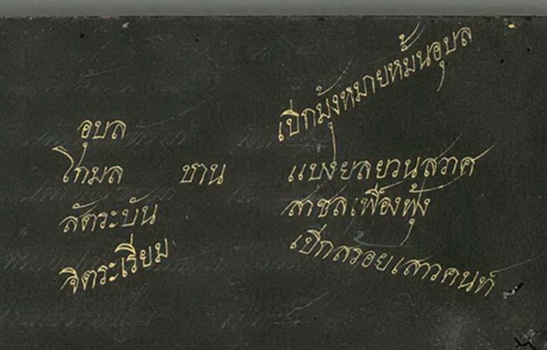 เบิกมุ้งหมายหมั้นอุบล
อุบล
โกมล บาน แบ่งยลยวนสวาศ
สัตระบัน สาชลเฟื่องฟุ้ง
จิตระเรียม เบิกสรอยเสาวคนท์